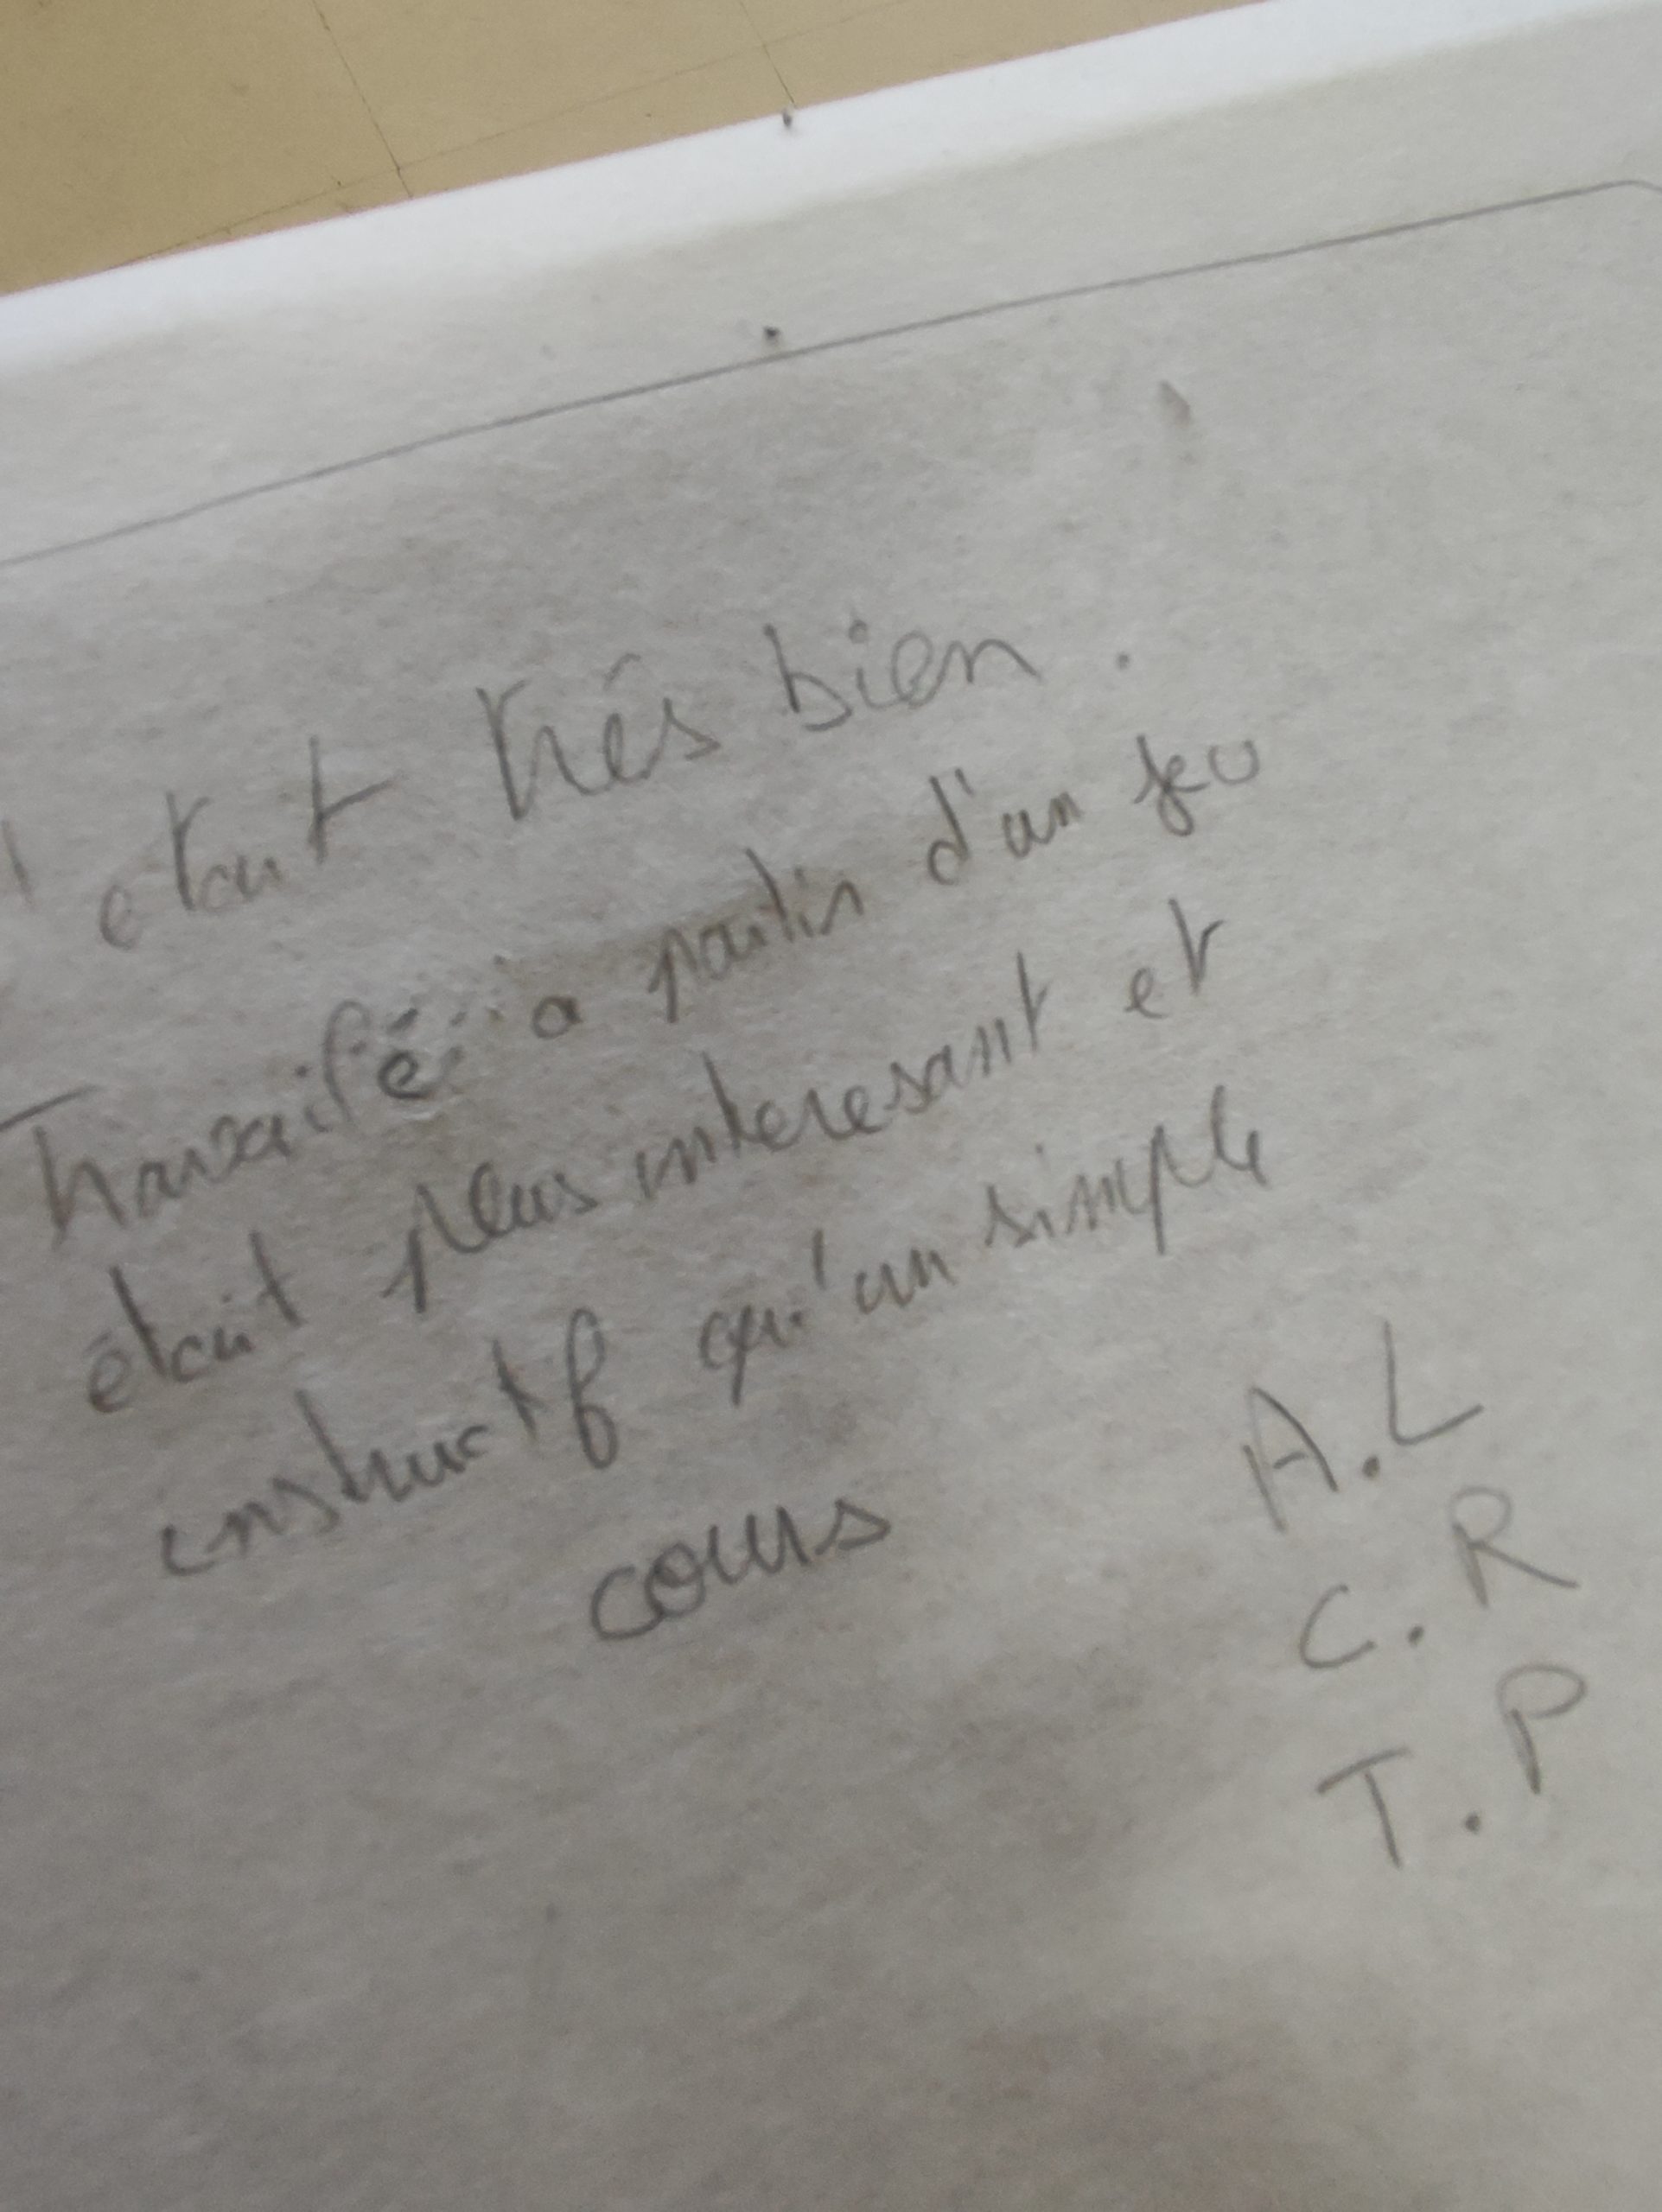 ' etait trés bien.
Travaillé a partir d'un jeu
était plus interesant et
instructif qu'un simple
cours
A.L
C.R
T.P